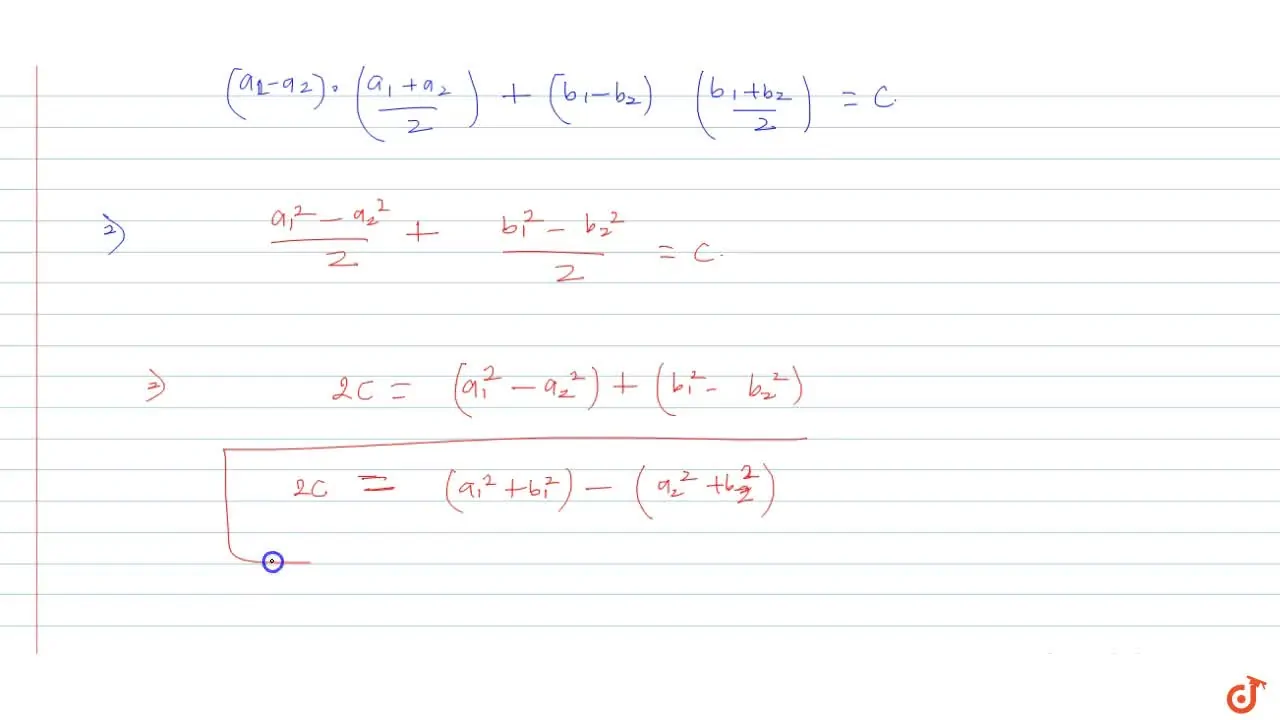 (a₁-a₂)·((a₁+a₂)/2) + (b₁-b₂) ((b₁+b₂)/2) = c.
⇒ (a₁²-a₂²)/2 + (b₁²-b₂²)/2 = c.
⇒ 2c = (a₁²-a₂²)+(b₁²-b₂²)
2c = (a₁²+b₁²)-(a₂²+b₂²)